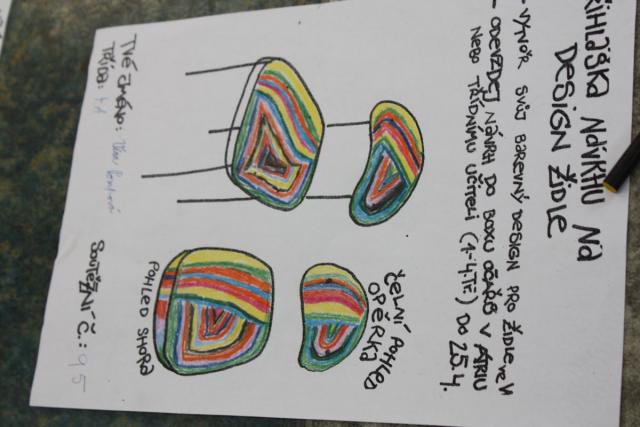 ŘIHLÁŠKA NÁVRHU NA
DESIGN ŽIDLE
- VYTVOŘ SVŮJ BAREVNÝ DESIGN PRO ŽIDLE VE
- ODEVZDEJ NÁVRH DO BOXU OŠAŘŠ V ÁTRIU
NEBO TŘÍDNÍMU UČITELI (1-4.TŘ.) DO 25.4.
ČELNÍ POHLED
OPĚRKA
POHLED SHORA
TVÉ JMÉNO:
TŘÍDA:
SOUTĚŽNÍ Č.: 95